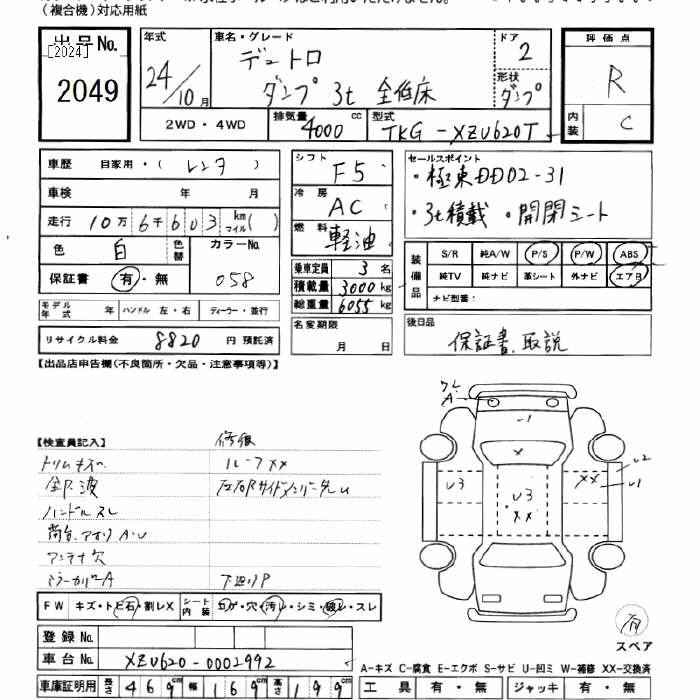 (複合機)対応用紙
出品No.
[2024]
2049
年式
24/10月
車名・グレード
デュトロ
ダンプ 3t 全低床
ドア
2
形状
ダンプ
評価点
R
内装
C
2WD・4WD
排気量
4000 cc
型式
TKG-XZU620T
車歴 自家用・(レンタ)
車検 年 月
走行 10万6千603 km マイル( )
色 白 色替 カラーNo. 058
保証書 有・無
モデル年式 年 ハンドル 左・右 ディーラー・並行
リサイクル料金 8820 円 預託済
シフト F5
冷房 AC
燃料 軽油
乗車定員 3 名
積載量 3000 kg
総重量 6055 kg
名変期限
月 日
セールスポイント
・極東DD02-31
・3t積載 ・開閉シート
装備品
S/R 純A/W P/S P/W ABS
純TV 純ナビ 革シート 外ナビ エアB
ナビ型番:
後日品
保証書、取説
【出品店申告欄(不良箇所・欠品・注意事項等)】
【検査員記入】
修復
トリムキズ
ルーフXX
全下廻
ハンドルスレ
荷台、アオリA・U
アンテナ欠
ミラーカバーA
下廻りP
ワレ
A
U3
U3
XX
XX
U2
U1
FW キズ・トビ石・割レX シート内装 コゲ・穴・汚レ・シミ・破レ・スレ
登録No.
車台No. XZU620-0002992
車庫証明用 長さ 469cm 幅 169cm 高さ 199cm
有
スペア
A-キズ C-腐食 E-エクボ S-サビ U-凹ミ W-補修 XX-交換済
工具 有・無 ジャッキ 有・無